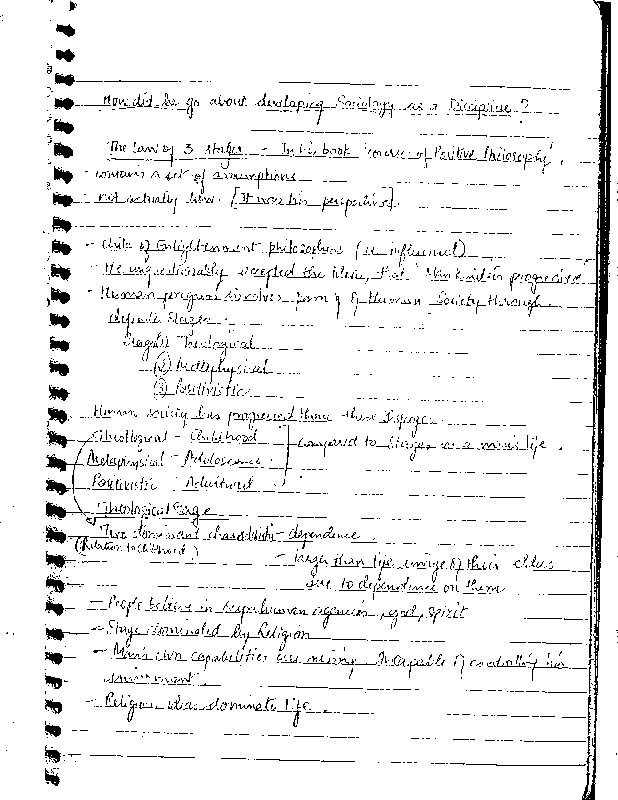 How did he go about developing Sociology as a Discipline?
The law of 3 stages - In his book 'course of Positive Philosophy'.
- contains a set of assumptions
- not actually laws. [It was his perspective].
- Child of Enlightenment philosophers (ie influenced)
- He unquestionably accepted the idea, that 'Mankind is progressive
- Human progress involves passing of Human Society through
definite Stages.
Stages Theological
(2) Metaphysical
(3) Positivistic
- Human society has progressed these 3 stages.
Theological - Childhood
Metaphysical - Adolescence
Positivistic - Adulthood
compared to Stages in a man's life.
Theological Stage
Two dominant - dependence
(Relation to childhood)
- larger than life image of their elders
due to dependence on them
- People believe in superhuman agencies, god, spirit
- Stage dominated by Religion
- Man's own capabilities are missing. Incapable of controlling his
environment.
- Religious ideas dominate life.